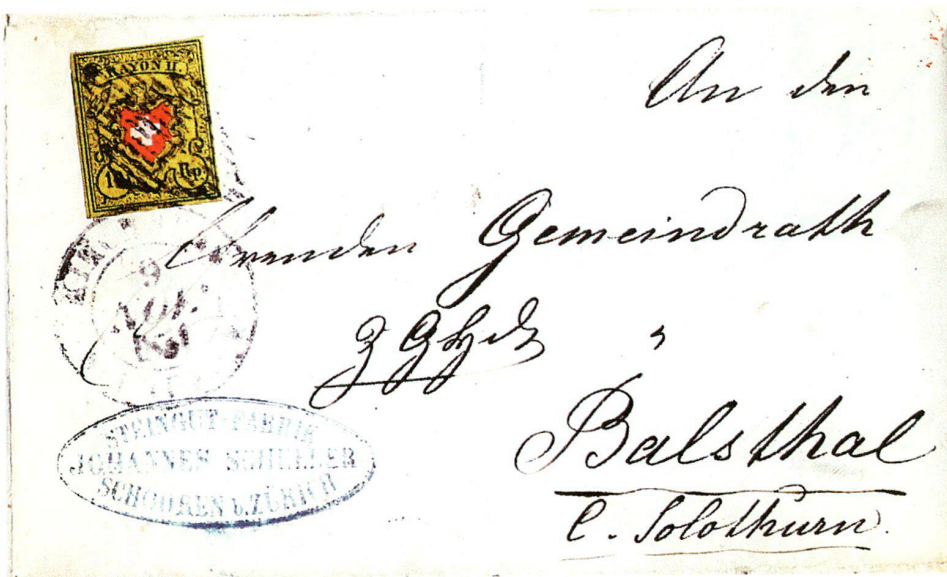 RAYON II.
Rp.
An den
Gemeindrath
Balsthal
C. Solothurn.
STEINGUT-FABRIK
JOHANNES SCHELLER
SCHOOREN b. ZÜRICH